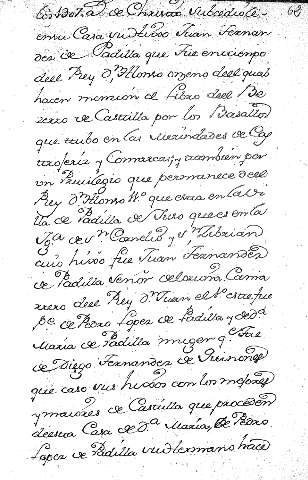 68
de Christo Subcedio le
en su Casa su hixo Juan Fernan
dez de Padilla que fue en tiempo
de el Rey Dn. Alonso onzeno de el qual
hacen mencion el Libro de el Be
zerro de Castilla por los Basallos
que tubo en las Merindades de Cas
troferiz y Comarcas, y tambien por
un Privilegio que permanece de el
Rey Dn. Alonso que esta en la Vi
lla de Padilla de Yuso que es en la
Yga. de Sn. Cornelio y Sn. Zibrian
cuio hixo fue Juan Fernandez
de Padilla Señor de Coruña, Cama
rero de el Rey Dn. Juan el 1º este fue
Pe. de Pedro Lopez de Padilla y de Da.
Maria de Padilla muger qe. fue
de Diego Fernandez de Quinones
que caso sus hixos con los mejores
y maiores de Castilla que proceden
de esta Casa de Da. Maria, de Pedro
Lopez de Padilla su hermano hace